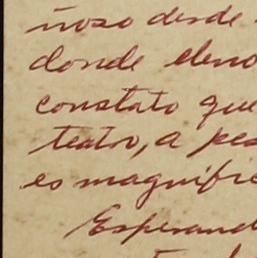 ñoso desde
donde
constato que
teatro, a pes
es magnífic
Esperand